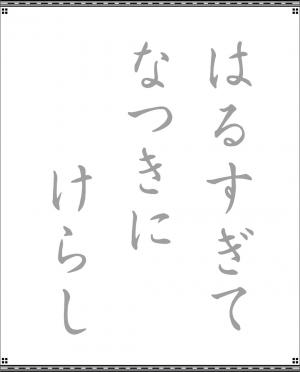 はるすぎて
なつきに
けらし